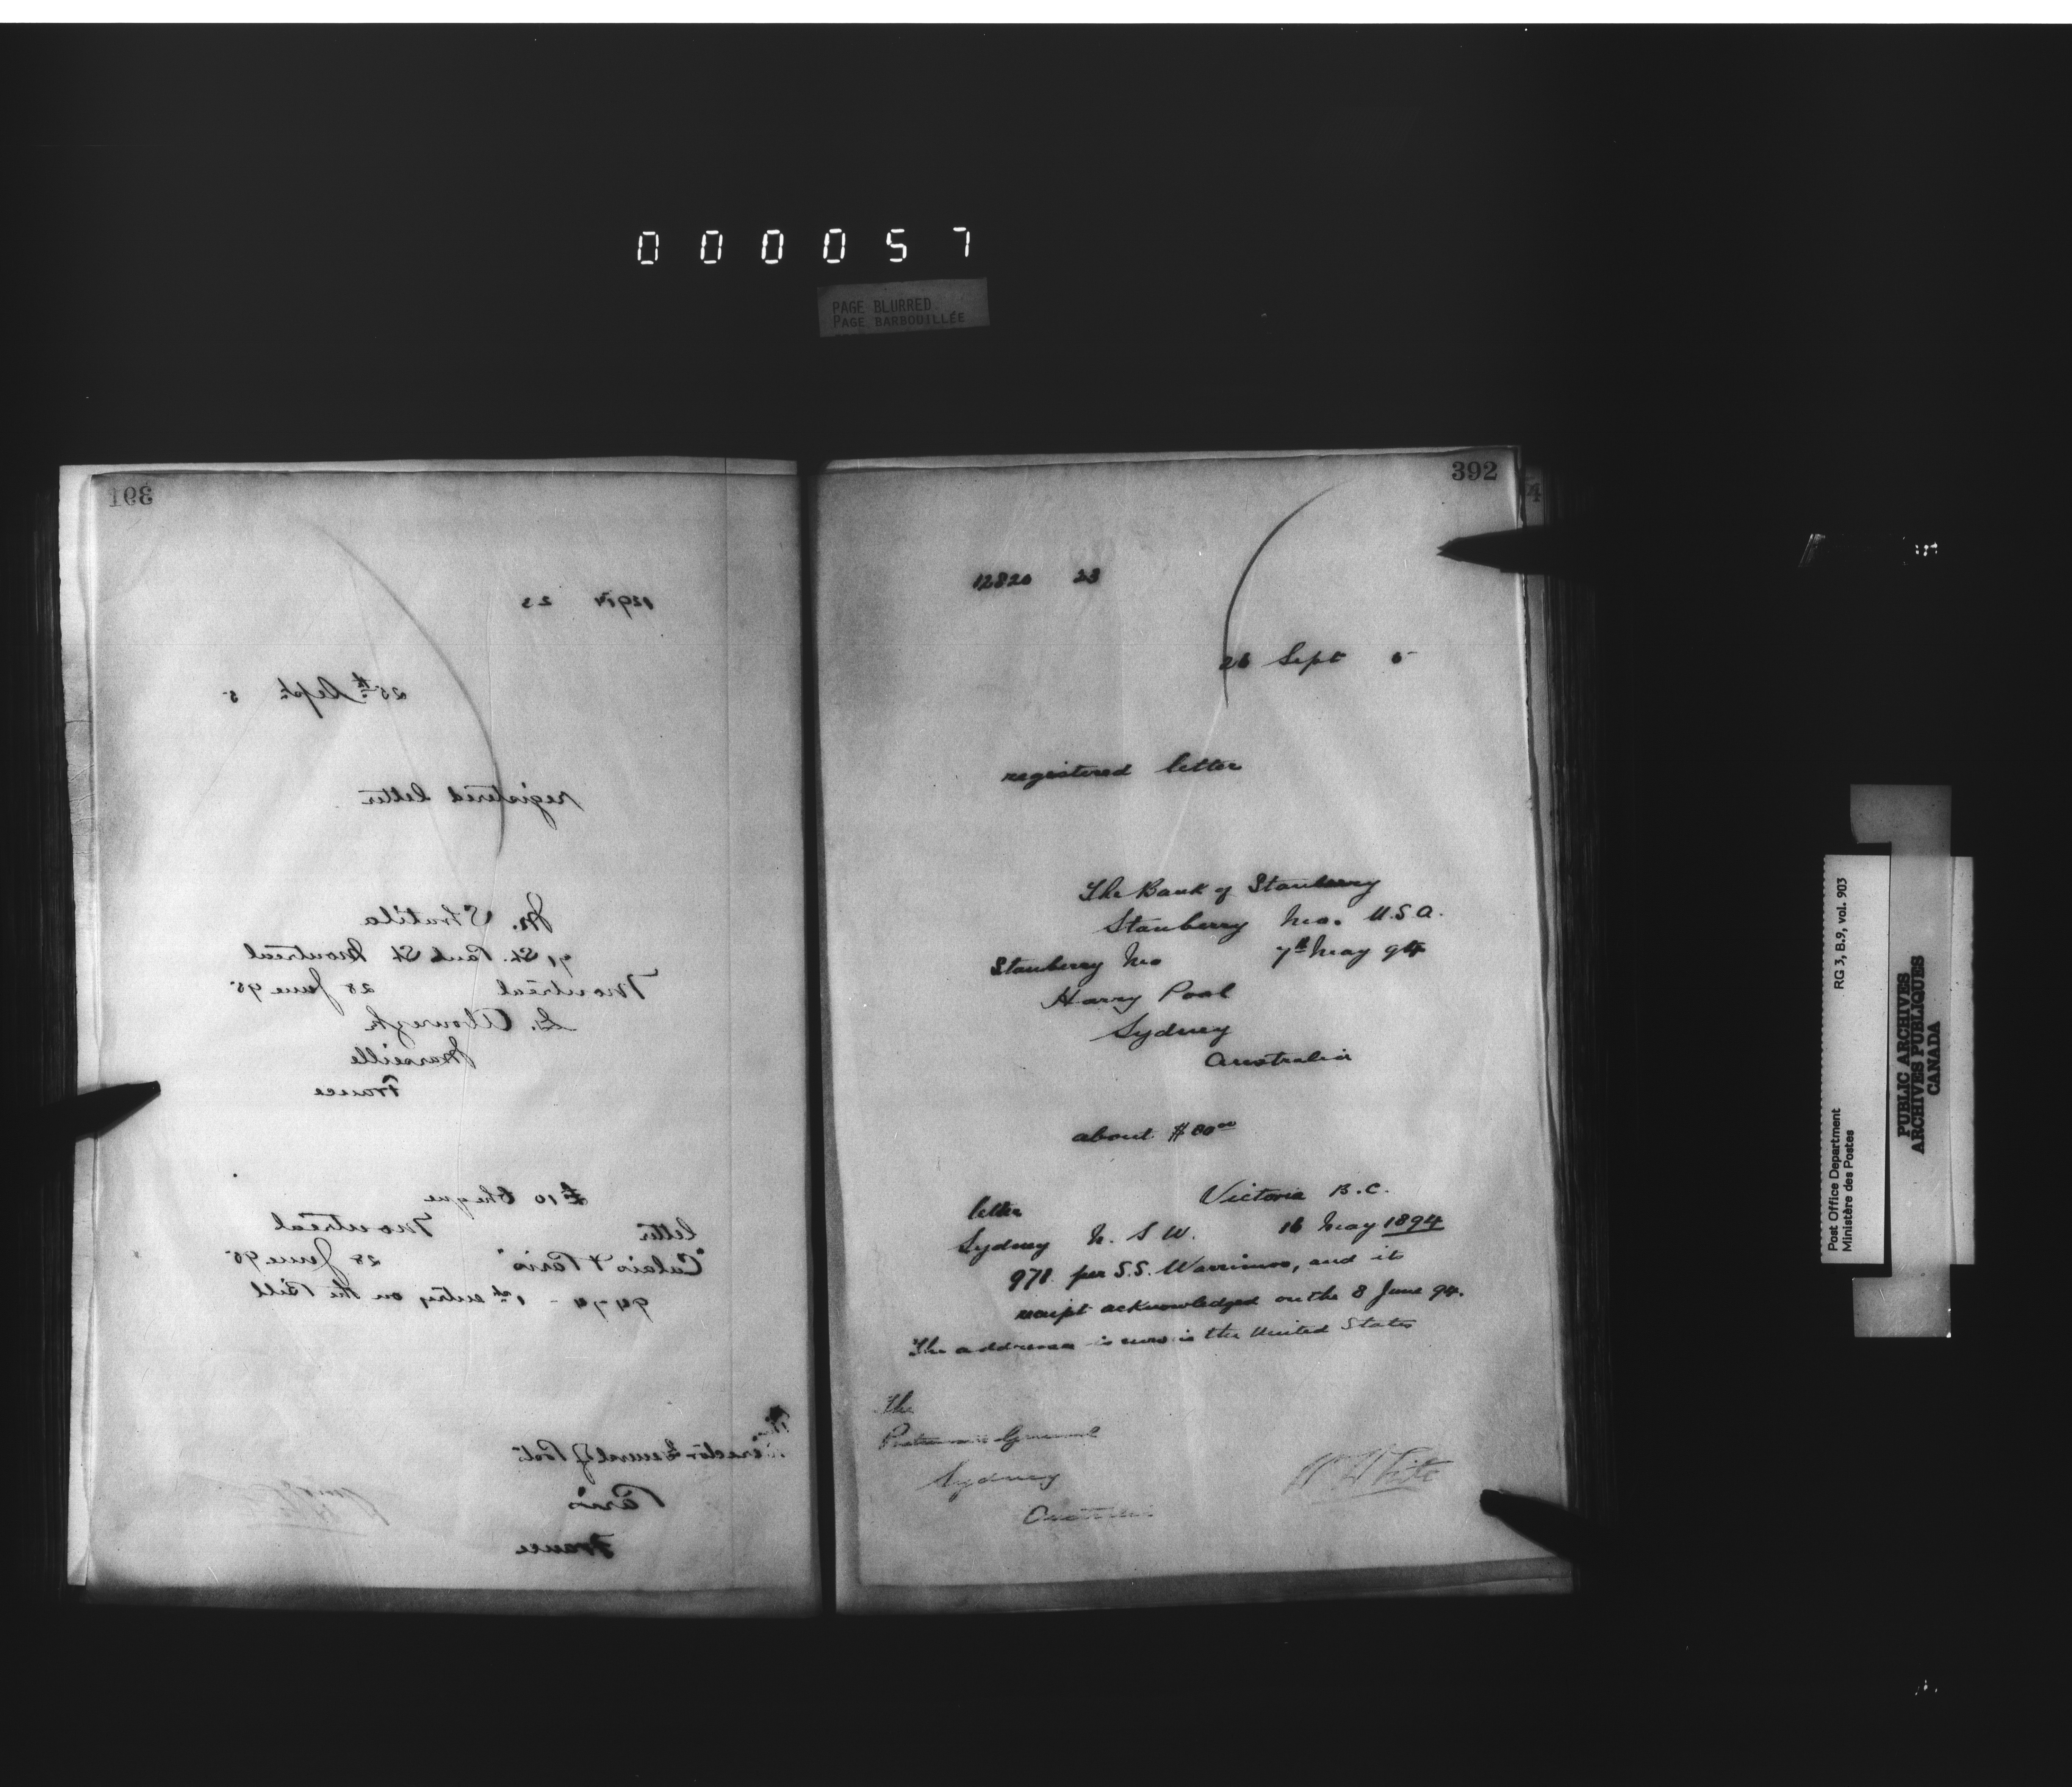 000057
PAGE BLURRED
PAGE BARBOUILLÉE
391
12914 23
25th Sept. 5
registered letter
M.
91 St. Paul St Montreal
Montreal 28 June 95
Marseille
France
£10 Cheque
letter Montreal
"Calais & Paris" 28 June 95
9474 - 1st entry on the Bill
The
Director General of Posts
Paris
France
392
12820 23
26 Sept 5
registered letter
The Bank of Stanberry
Stanberry Mo. U.S.A.
Stanberry Mo 7th May 94
Harry Pool
Sydney
Australia
about $80.00
letter Victoria B.C.
Sydney N. S W. 16 May 1894
971 per S.S. Warrimoo, and its
receipt acknowledged on the 8 June 94.
The addressee is now in the United States
The
Postmaster General
Sydney
Australia
White
4
RG 3, B.9, vol. 903
Post Office Department
Ministère des Postes
PUBLIC ARCHIVES
ARCHIVES PUBLIQUES
CANADA